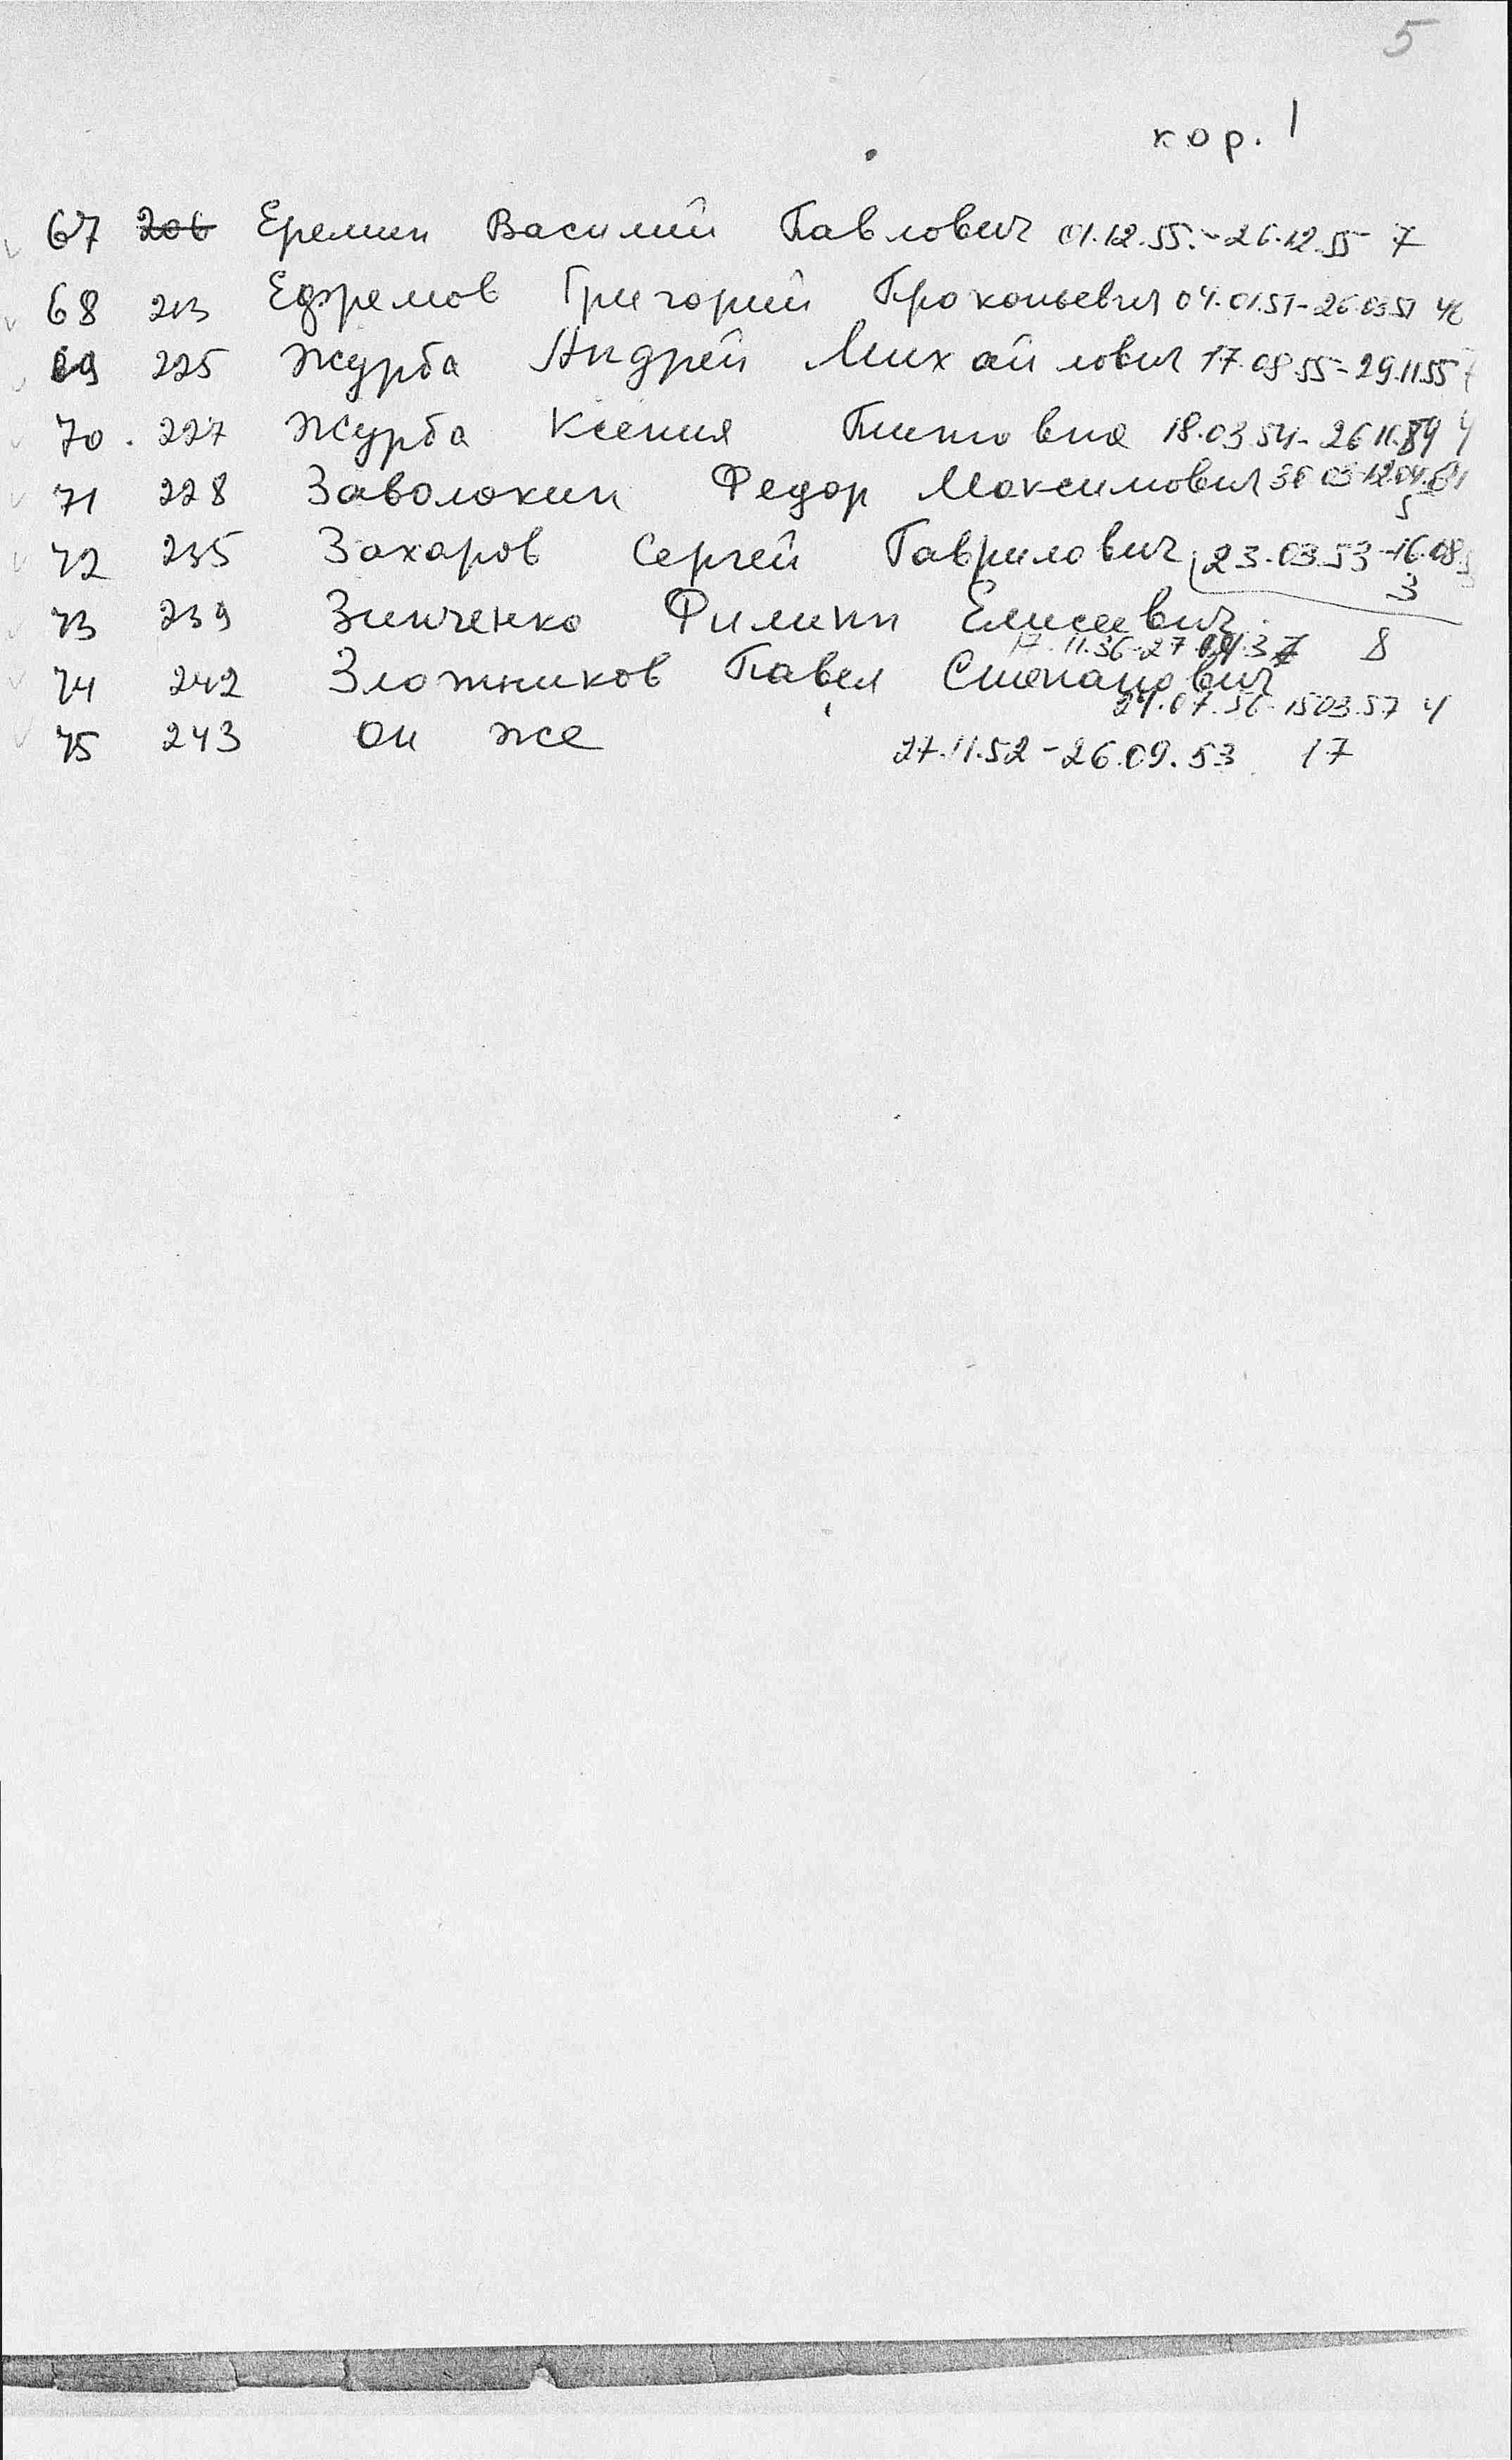 5
кор. 1
67 206 Еремин Василий Павлович 01.12.55.-26.12.55 7
68 213 Ефремов Григорий Прокопьевич 04.01.51-26.03.51
69 225 Журба Андрей Михайлович 17.08.55-29.11.55
70. 227 Журба Ксения Титовна 18.03.54-26.11. 4
71 228 Заволокин Федор Максимович
5
72 235 Захаров Сергей Гаврилович 23.03.53-16.08.
3
73 239 Зинченко Филипп Елисеевич
17.11.36-27. 8
74 242 Зложников Павел Степанович
07.56-15.03.57 4
75 243 Он же 27.11.52-26.09.53 17